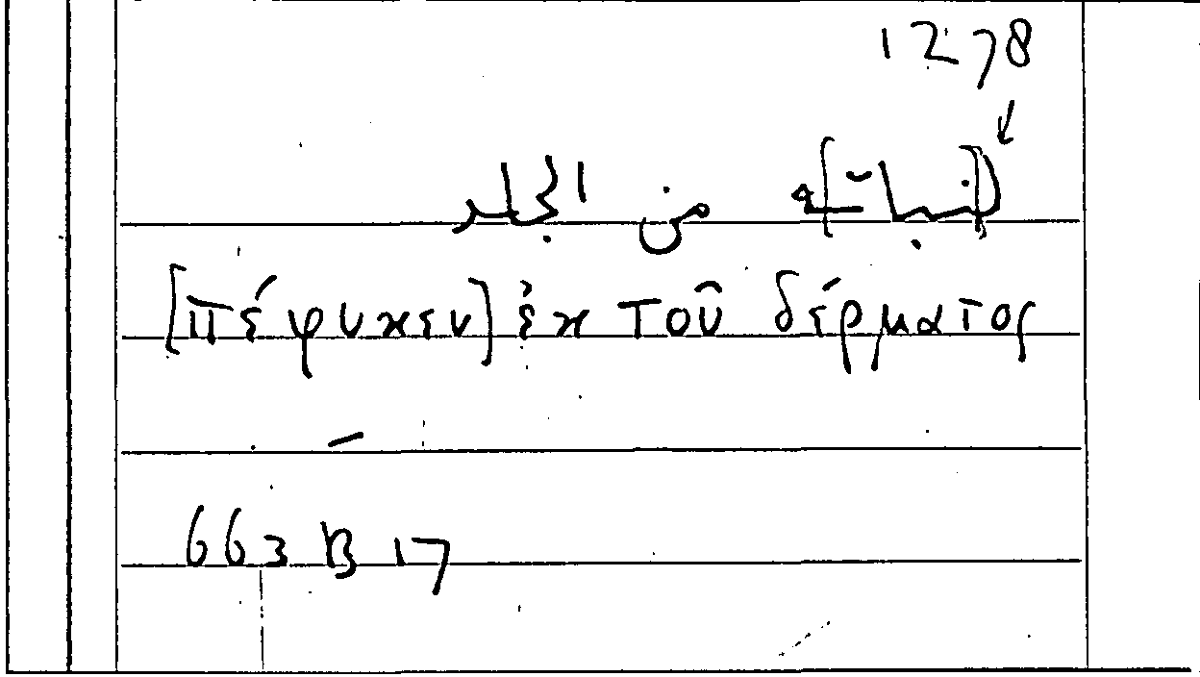 1278
↓
[لنباتـ]ـه من الجلد
[πέφυκεν] ἐκ τοῦ δέρματος
–
663 B 17